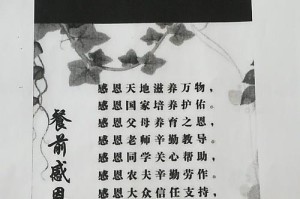 餐前感恩
感恩天地滋养万物，
感恩国家培养护佑。
感恩父母养育之恩，
感恩老师辛勤教导。
感恩同学关心帮助，
感恩农夫辛勤劳作，
感恩大众信任支持，